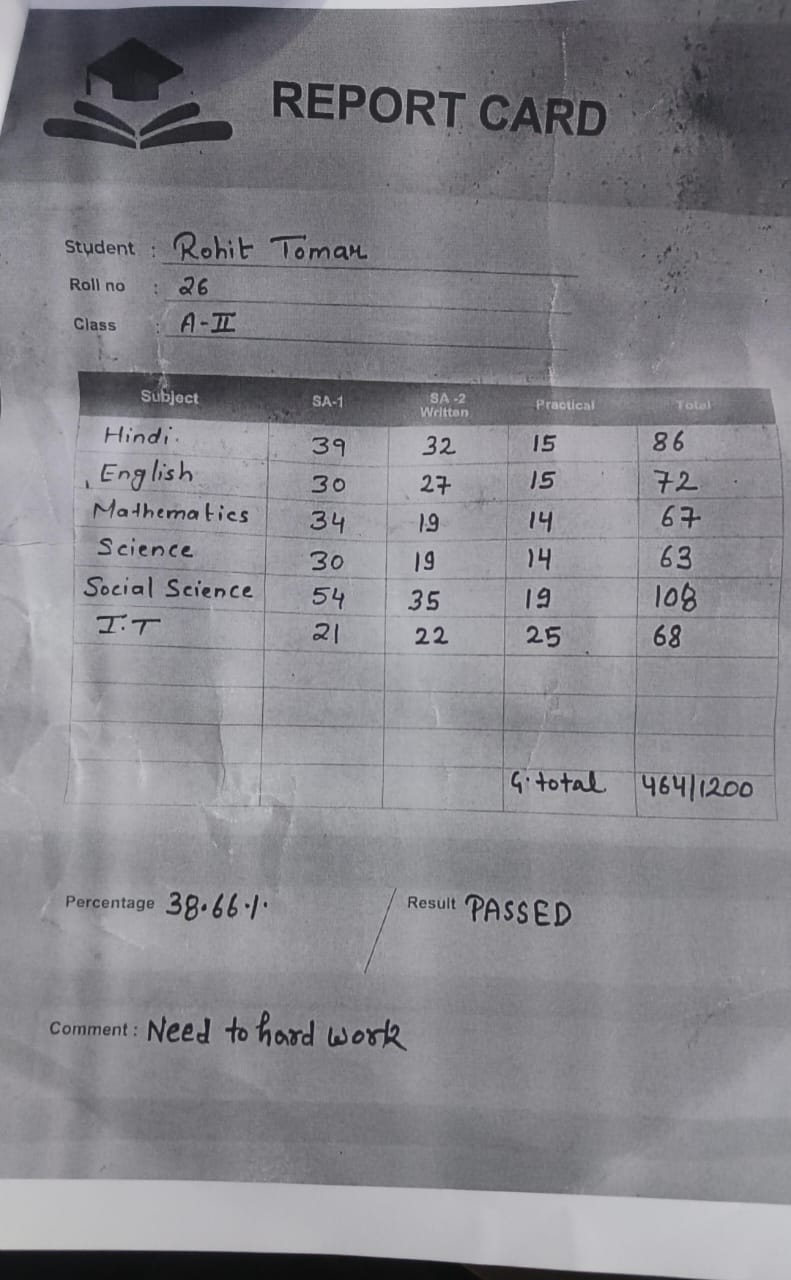 REPORT CARD
Student : Rohit Tomar
Roll no : 26
Class : A-II
Subject SA-1 SA-2 Written Practical Total
Hindi. 39 32 15 86
English 30 27 15 72
Mathematics 34 19 14 67
Science 30 19 14 63
Social Science 54 35 19 108
I.T 21 22 25 68
G.total 464/1200
Percentage 38.66% / Result PASSED
Comment : Need to hard work